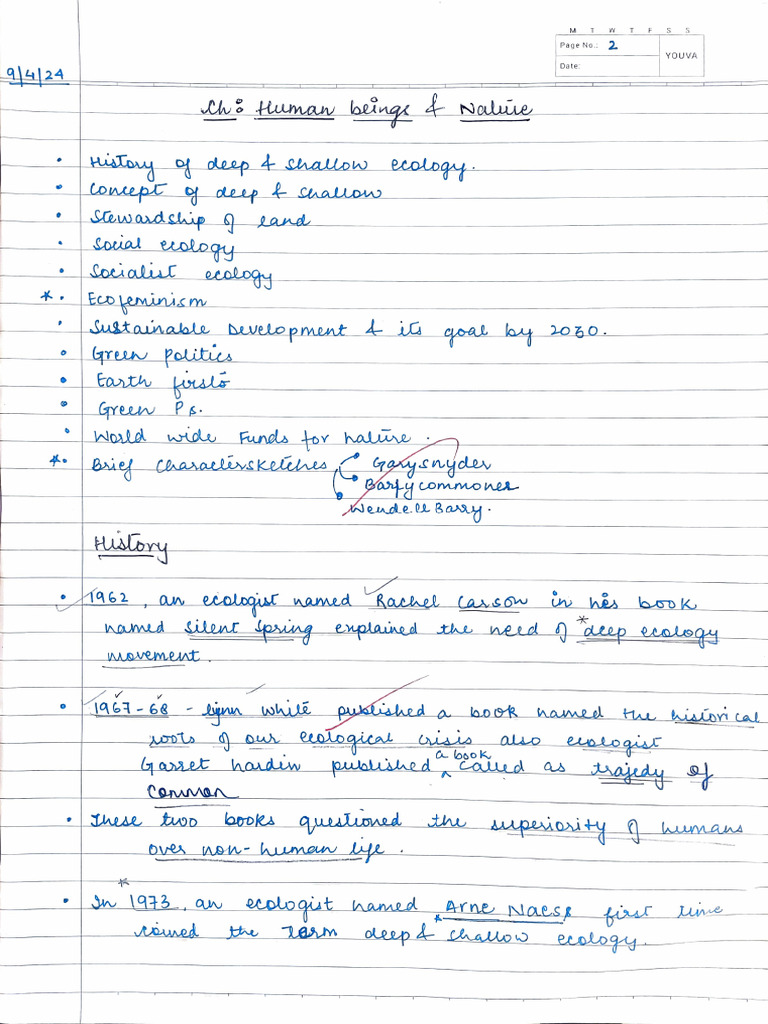 M T W T F S S
Page No.: 2
YOUVA
Date:
9/4/24
Ch: Human beings & Nature
• History of deep & shallow ecology.
• Concept of deep & shallow
• Stewardship of land
• Social ecology
• Socialist ecology
* • Ecofeminism
• Sustainable Development & its goal by 2030.
• Green politics
• Earth first
• Green Ps.
• World wide Funds for nature.
* • Brief Charactersketches Gary snyder
Barry commoner
Wendell Barry.
History
• 1962, an ecologist named Rachel Carson in his book
named silent spring explained the need of * deep ecology
movement.
• 1967-68 - lynn white published a book named the historical
roots of our ecological crisis also ecologist
Garret hardin published a book called as trajedy of
common
• These two books questioned the superiority of humans
over non-human life.
• In * 1973, an ecologist named Arne Naess first time
coined the term deep & * shallow ecology.